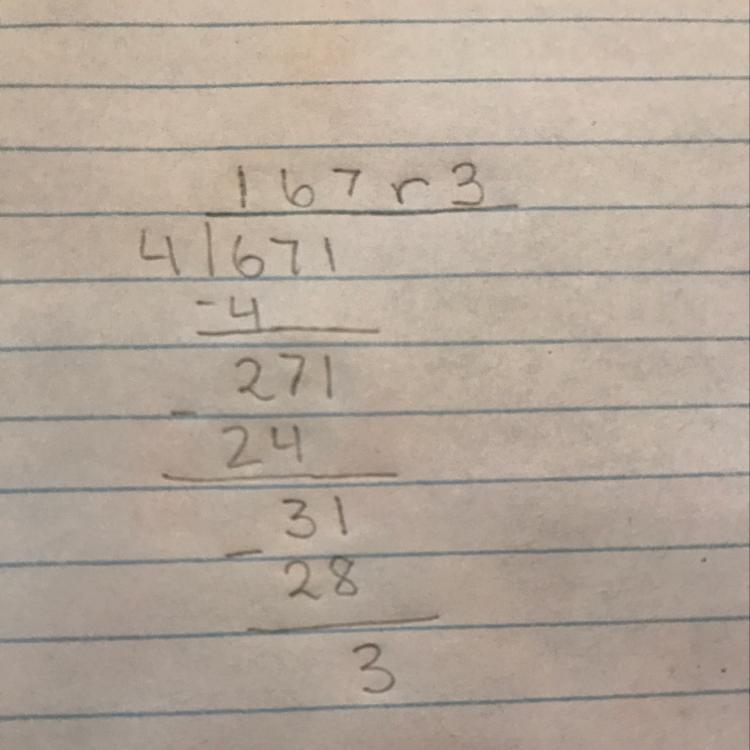 167 r 3
4 671
-4
271
- 24
31
- 28
3